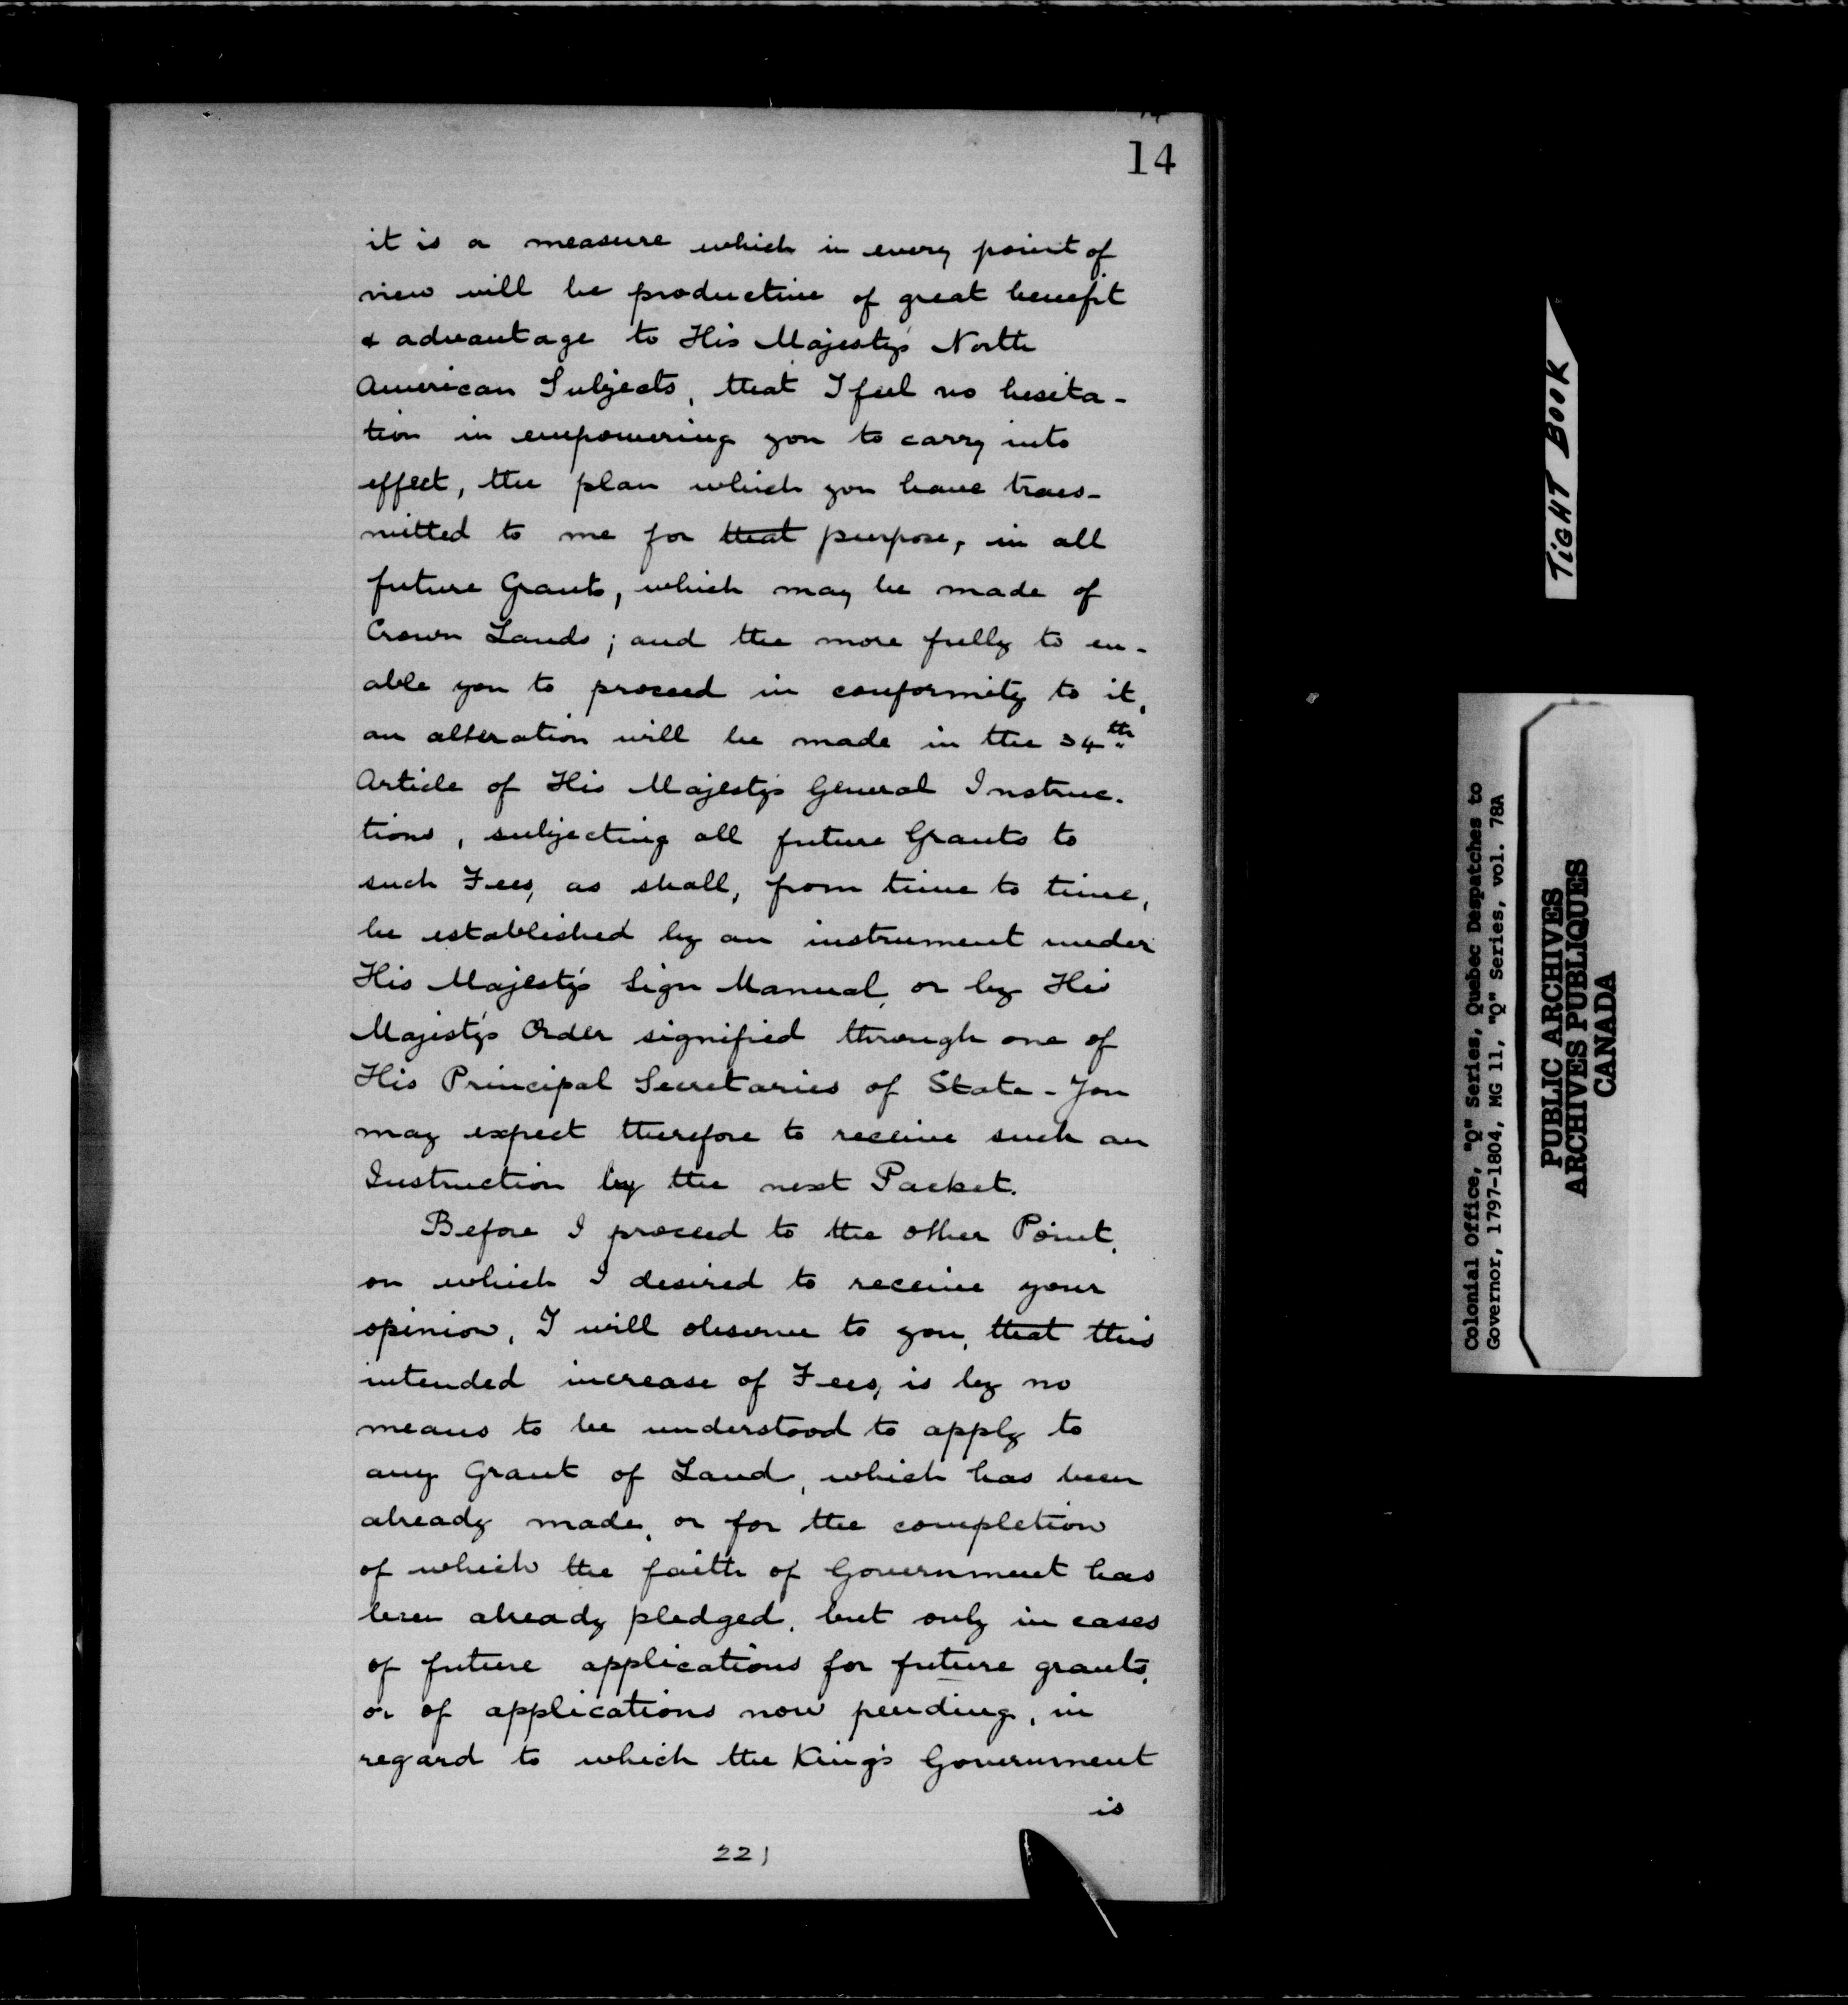 14
it is a measure which in every point of
view will be productive of great benefit
& advantage to His Majesty's North
American Subjects, that I feel no hesita-
tion in empowering you to carry into
effect, the plan which you have trans-
mitted to me for that purpose, in all
future Grants, which may be made of
Crown Lands; and the more fully to en-
able you to proceed in conformity to it,
an alteration will be made in the 34th
Article of His Majesty's General Instruc-
tions, subjecting all future Grants to
such Fees, as shall, from time to time,
be established by an instrument under
His Majesty's Sign Manual, or by His
Majesty's Order signified through one of
His Principal Secretaries of State - You
may expect therefore to receive such an
Instruction by the next Packet.
Before I proceed to the other Point,
on which I desired to receive your
opinion, I will observe to you, that this
intended increase of Fees, is by no
means to be understood to apply to
any Grant of Land, which has been
already made, or for the completion
of which the faith of Government has
been already pledged, but only in cases
of future applications for future grants,
or of applications now pending, in
regard to which the King's Government
is
221
TIGHT BOOK
Colonial Office, "Q" Series, Quebec Despatches to
Governor, 1797-1804, MG 11, "Q" Series, vol. 78A
PUBLIC ARCHIVES
ARCHIVES PUBLIQUES
CANADA